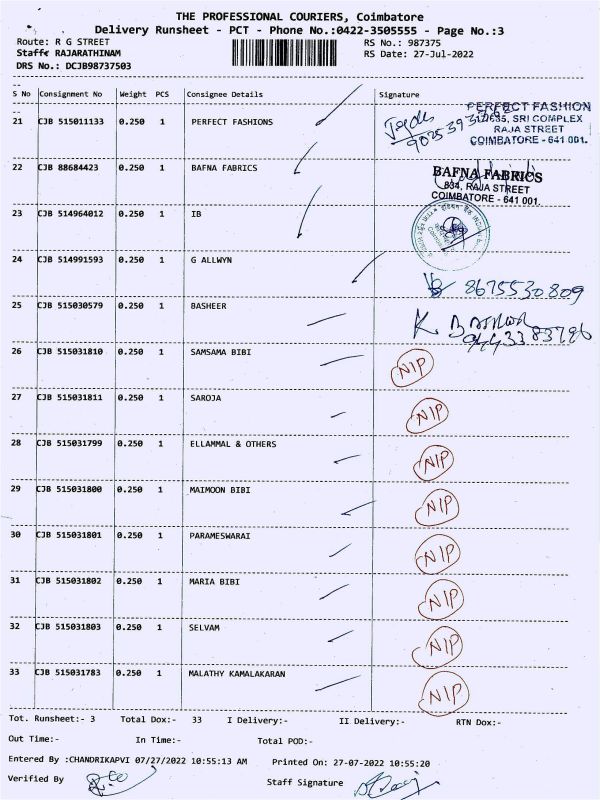 THE PROFESSIONAL COURIERS, Coimbatore
Delivery Runsheet - PCT - Phone No.:0422-3505555 - Page No.:3
Route: R G STREET RS No.: 987375
Staff: RAJARATHINAM RS Date: 27-Jul-2022
DRS No.: DCJB98737503
S No Consignment No Weight PCS Consignee Details Signature
21 CJB 515011133 0.250 1 PERFECT FASHIONS
PERFECT FASHION
SRI COMPLEX
RAJA STREET
COIMBATORE - 641 001.
22 CJB 88684423 0.250 1 BAFNA FABRICS
BAFNA FABRICS
834, RAJA STREET
COIMBATORE - 641 001.
23 CJB 514964012 0.250 1 IB
24 CJB 514991593 0.250 1 G ALLWYN
8675530809
25 CJB 515030579 0.250 1 BASHEER
K
9443383786
26 CJB 515031810 0.250 1 SAMSAMA BIBI NIP
27 CJB 515031811 0.250 1 SAROJA NIP
28 CJB 515031799 0.250 1 ELLAMMAL & OTHERS NIP
29 CJB 515031800 0.250 1 MAIMOON BIBI NIP
30 CJB 515031801 0.250 1 PARAMESWARAI NIP
31 CJB 515031802 0.250 1 MARIA BIBI NIP
32 CJB 515031803 0.250 1 SELVAM NIP
33 CJB 515031783 0.250 1 MALATHY KAMALAKARAN NIP
Tot. Runsheet:- 3 Total Dox:- 33 I Delivery:- II Delivery:- RTN Dox:-
Out Time:- In Time:- Total POD:-
Entered By :CHANDRIKAPVI 07/27/2022 10:55:13 AM Printed On: 27-07-2022 10:55:20
Verified By Staff Signature